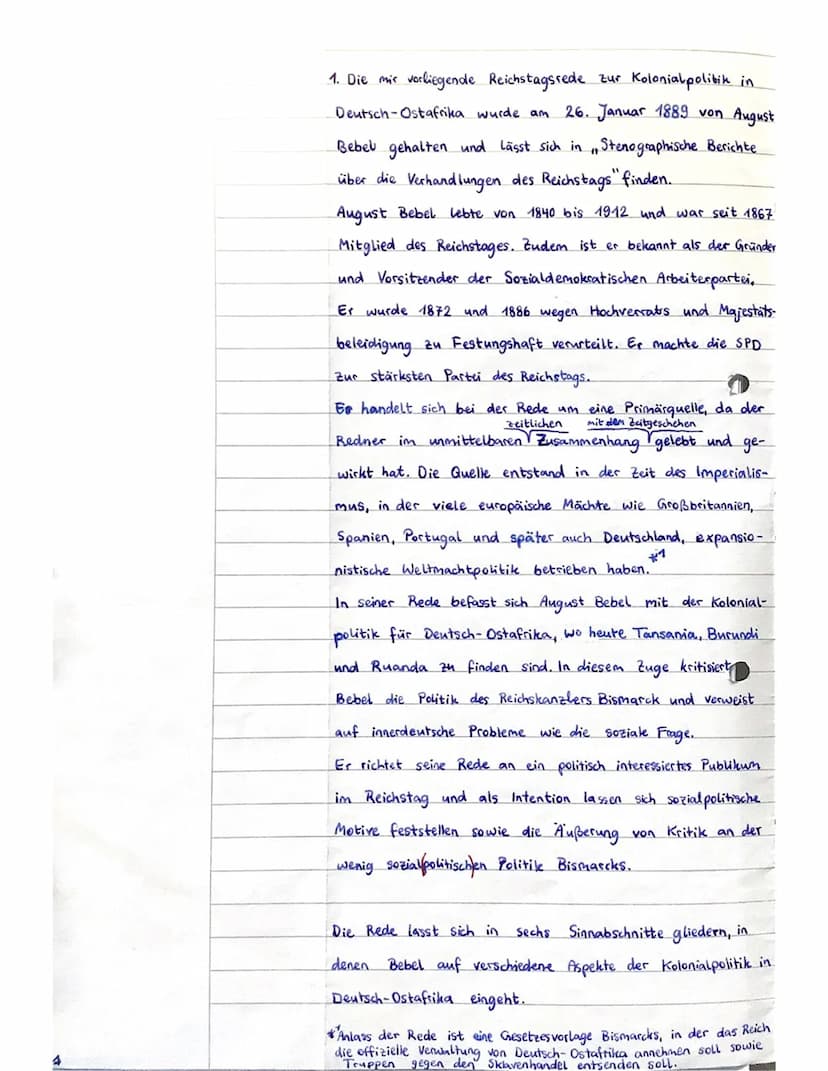 1. Die mir vorliegende Reichstagsrede zur Kolonialpolitik in
Deutsch-Ostafrika wurde am 26. Januar 1889 von August
Bebel gehalten und lässt sich in „Stenographische Berichte
über die Verhandlungen des Reichstags" finden.
August Bebel lebte von 1840 bis 1912 und war seit 1867
Mitglied des Reichstages. Zudem ist er bekannt als der Gründer
und Vorsitzender der Sozialdemokratischen Arbeiterpartei.
Er wurde 1872 und 1886 wegen Hochverrats und Majestäts-
beleidigung zu Festungshaft verurteilt. Er machte die SPD
zur stärksten Partei des Reichstags.
Es handelt sich bei der Rede um eine Primärquelle, da der
zeitlichen mit dem Zeitgeschehen
Redner im unmittelbaren Zusammenhang gelebt und ge-
wirkt hat. Die Quelle entstand in der Zeit des Imperialis-
mus, in der viele europäische Mächte wie Großbritannien,
Spanien, Portugal und später auch Deutschland, expansio-
nistische Weltmachtpolitik betrieben haben. *1
In seiner Rede befasst sich August Bebel mit der Kolonial-
politik für Deutsch-Ostafrika, wo heute Tansania, Burundi
und Ruanda zu finden sind. In diesem Zuge kritisiert
Bebel die Politik des Reichskanzlers Bismarck und verweist
auf innerdeutsche Probleme wie die soziale Frage.
Er richtet seine Rede an ein politisch interessiertes Publikum
im Reichstag und als Intention lassen sich sozialpolitische
Motive feststellen sowie die Äußerung von Kritik an der
wenig sozial(politisch)en Politik Bismarcks.
Die Rede lässt sich in sechs Sinnabschnitte gliedern, in
denen Bebel auf verschiedene Aspekte der Kolonialpolitik in
Deutsch-Ostafrika eingeht.
*1 Anlass der Rede ist eine Gesetzesvorlage Bismarcks, in der das Reich
die offizielle Verwaltung von Deutsch-Ostafrika annehmen soll sowie
Truppen gegen den Sklavenhandel entsenden soll.